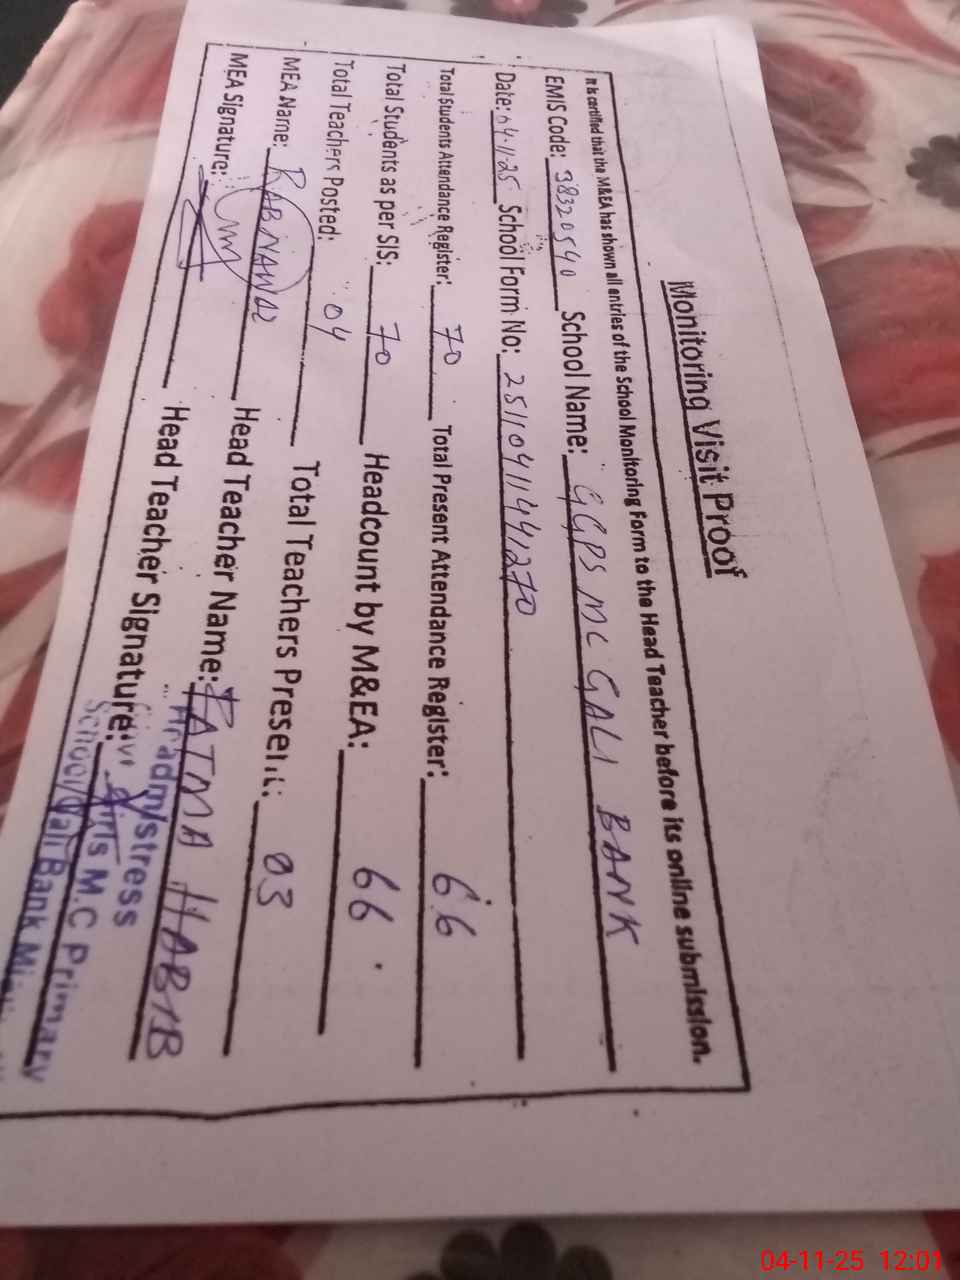 Monitoring Visit Proof
It is certified that the M&EA has shown all entries of the School Monitoring Form to the Head Teacher before its online submission.
EMIS Code: 38320540 School Name: GGPS MC GALI BANK
Date: 04-11-25 School Form No: 2511041141270
Total Students Attendance Register: 70 Total Present Attendance Register: 66
Total Students as per SIS: 70 Headcount by M&EA: 66
Total Teachers Posted: 04 Total Teachers Present: 03
MEA Name: RAB NAWAZ Head Teacher Name: FATMA HABIB
MEA Signature: Head Teacher Signature:
Headmistress
Girls M.C Primary
School Gali Bank
04-11-25 12:01